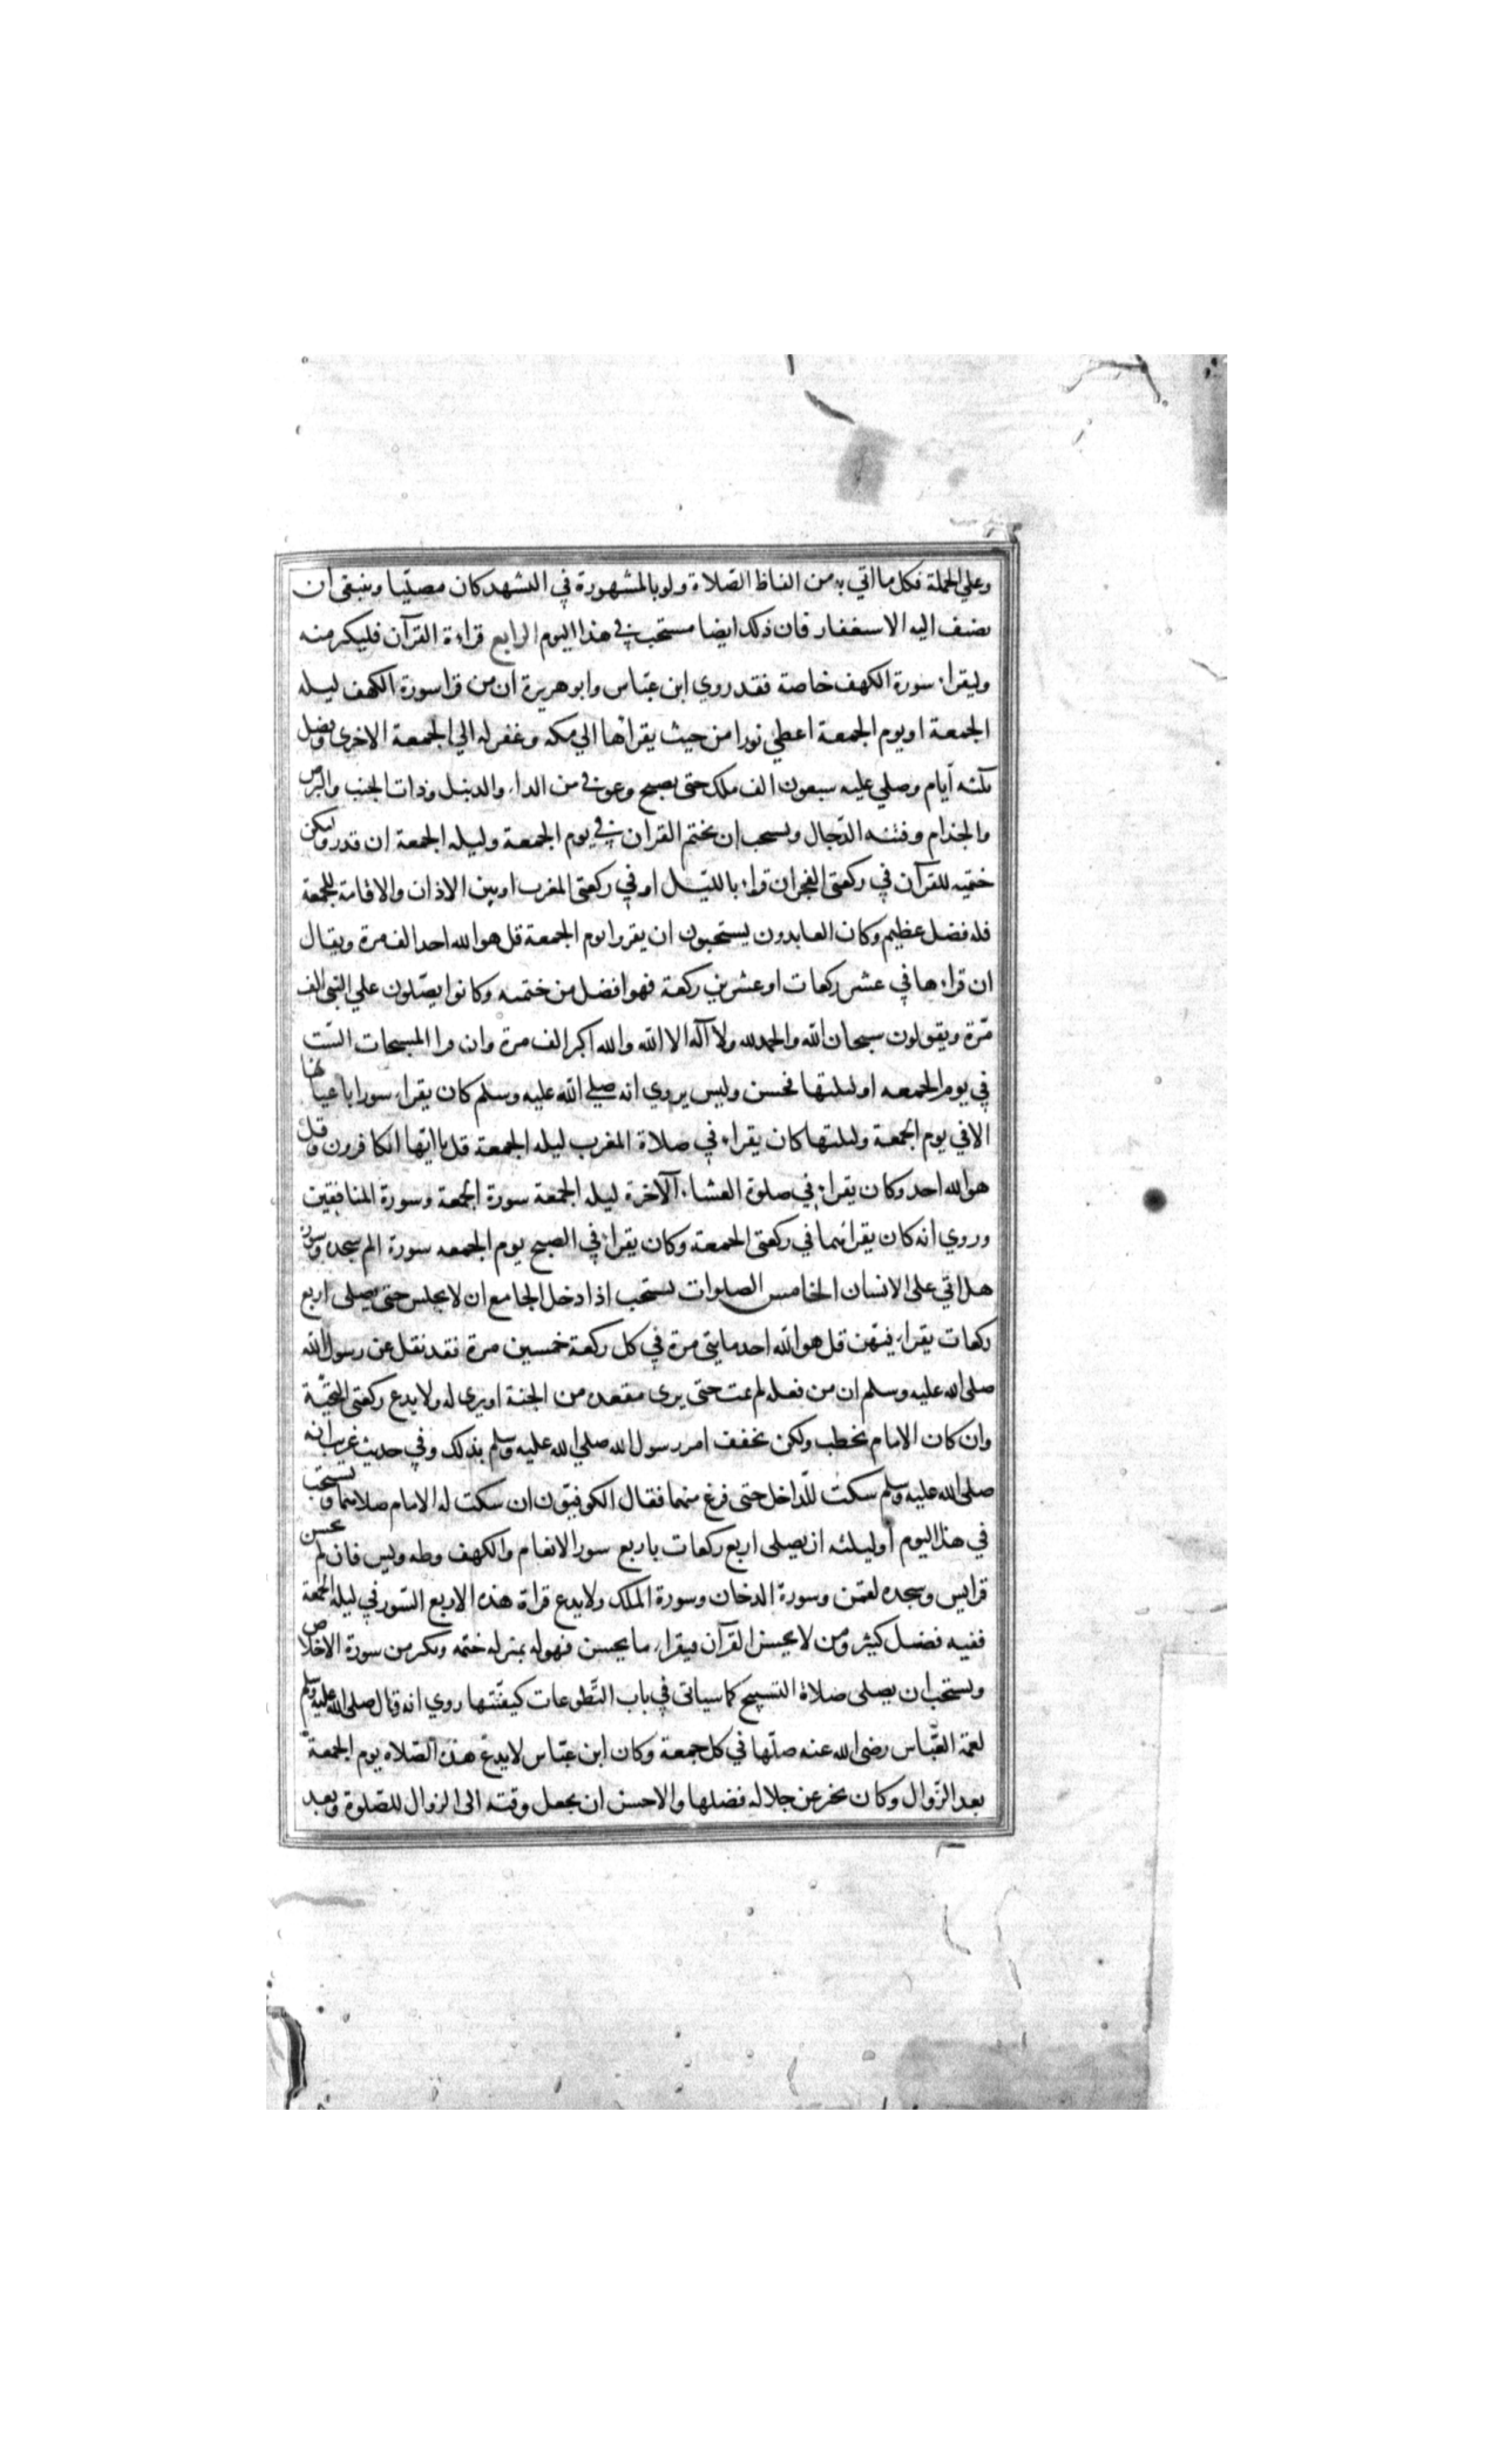 وعلي الجملة فكل ما اتي به من الفاظ الصّلاة ولو بالمشهورة في التشهد كان مصليّا وينبغي ان
يضيف اليه الاستغفار فان ذلك ايضا مستحب في هذا اليوم الرابع قراءة القرآن فليكثر منه
وليقراء سورة الكهف خاصة فقد روي ابن عبّاس وابو هريرة ان من قرا سورة الكهف ليله
الجمعة او يوم الجمعة اعطي نورا من حيث يقراها الي مكه وغفر له الي الجمعة الاخري وفضل
ثلثه ايام وصلي عليه سبعون الف ملك حتي يصبح وعوفي من الداء والدبيل وذات الجنب والبرص
والجذام وفتنه الدّجال ويستحب ان يختم القران في يوم الجمعة وليله الجمعة ان قدر وليكن
ختمه للقرآن في ركعتي الفجر ان قراء بالليّل او في ركعتي المغرب او بين الاذان والاقامة للجمعة
فله فضل عظيم وكان العابدون يستحبون ان يقروا يوم الجمعة قل هو الله احد الف مرة ويقال
ان قراءها في عشر ركعات او عشرين ركعة فهو افضل من ختمه وكانوا يصّلون علي النبي الف
مّرة ويقولون سبحان الله والحمد لله ولا آله الا الله والله اكبر الف مرة وان قرا المسبحات الستّ
في يوم الجمعه او ليلتها فحسن وليس يروي انه صلي الله عليه وسلم كان يقراء سورا باعيانها
الا في يوم الجمعة وليلتها كان يقراء في صلاة المغرب ليله الجمعة قل يا ايّها الكافرون وقل
هو الله احد وكان يقراء في صلوة العشاء الآخرة ليله الجمعة سورة الجمعة وسورة المنافقين
وروي انه كان يقراهما في ركعتي الجمعة وكان يقراء في الصبح يوم الجمعه سورة الم سجده وسورة
هل اتي علي الانسان الخامس الصلوات يستحب اذا دخل الجامع ان لا يجلس حتي يصلي اربع
ركعات يقراء فيهن قل هو الله احد مايتي مرة في كل ركعة خمسين مرة فقد نقل عن رسول الله
صلي الله عليه وسلم ان من فعله لم يمت حتي يري مقعده من الجنة او يري له ولا يدع ركعتي التحيّة
وان كان الامام يخطب ولكن يخفف امر رسول الله صلي الله عليه وسلم بذلك وفي حديث غريب انه
صلي الله عليه وسلم سكت للّداخل حتي فرغ منهما فقال الكوفيّون ان سكت له الامام صلاهما ويستحب
في هذا اليوم او ليلته ان يصلي اربع ركعات باربع سور الانعام والكهف وطه ويس فان لم يحسن
قرا يس وسجده لقمن وسورة الدخان وسورة الملك ولا يدع قراة هذه الاربع السّور في ليله الجمعة
ففيه فضل كثير ومن لا يحسن القرآن فيقراء ما يحسن فهو له بمنزله ختمه ويكثر من سورة الاخلاص
ويستحب ان يصلي صلاة التسبيح كما سياتي في باب التّطوعات كيفيّتها روي انه قال صلي الله عليه وسلم
لعمّه العبّاس رضي الله عنه صلّها في كل جمعة وكان ابن عبّاس لا يدع هذه الصّلاه يوم الجمعة
بعد الزّوال وكان يخبر عن جلاله فضلها والاحسن ان يجعل وقته الي الزوال للصّلوة وبعد